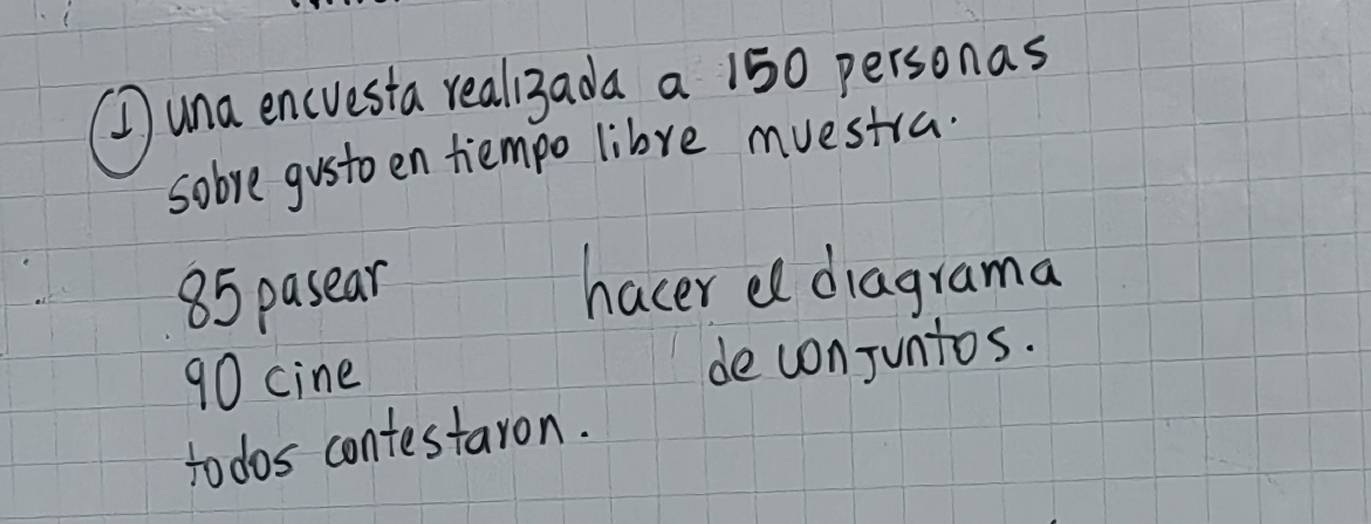 ① una encuesta realizada a 150 personas
sobre gusto en tiempo libre muestra.
85 pasear
90 cine
todos contestaron.
hacer el diagrama
de conjuntos.